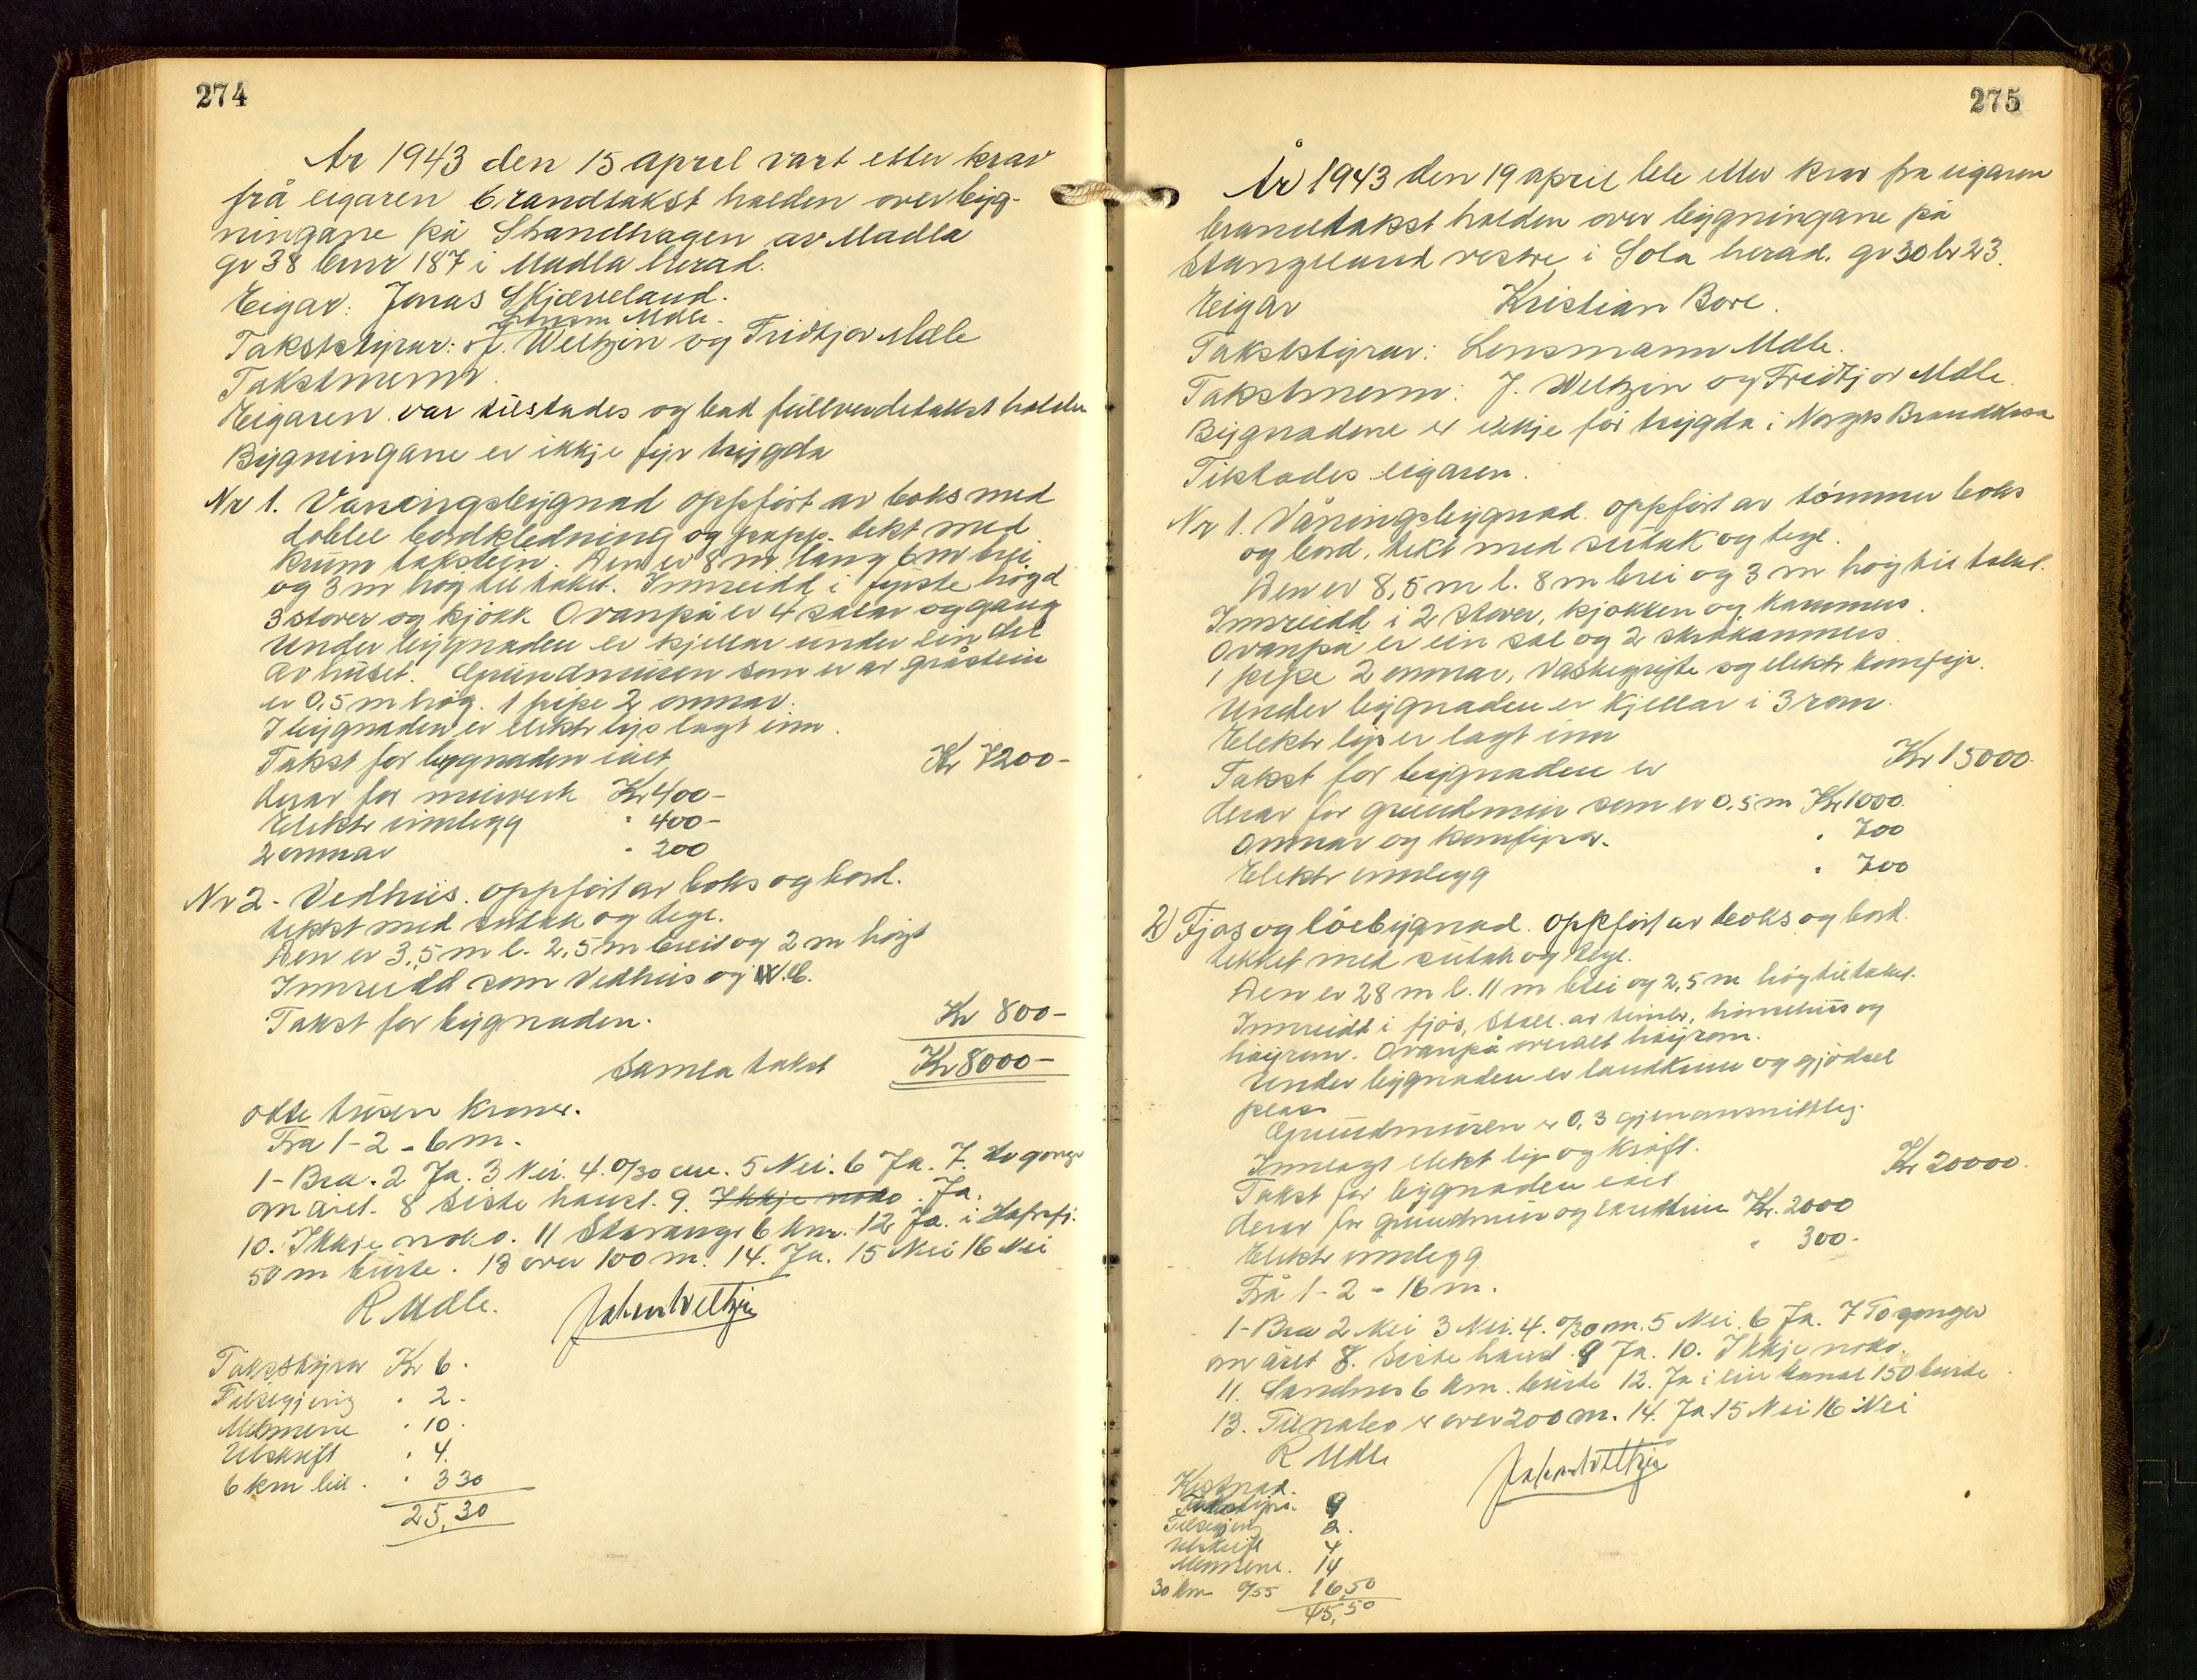 274
År 1943 den 15 april vart etter krav
frå eigaren brandtakst halden over byg-
ningane på Strandhagen av Madla
gr 38 bnr 187 i Madla herad.
Eigar: Jonas Skjæveland.
Lensm Mæle.
Takststyrar: J. Weltzin og Fridtjov Mæle
Takstmenn
Eigaren var tilstades og bad fullverdetakst halden
Bygningane er ikkje fyr trygda
Nr 1. Våningsbygnad oppført av boks med
dobbel bordkledning og papp. tekt med
krum takstein. Den er 8 m lang 6 m brei
og 3 m høg til taket. Innreidd i fyrste høgd
3 stover og kjøkk. Ovanpå er 4 salar og gang
Under bygnaden er kjellar under ein del
av huset. Grundmuren som er av gråstein
er 0,5 m høg. 1 pipe 2 omnar.
I bygnaden er elektr lys lagt inn.
Takst for bygnaden i alt Kr 7200-
derav for murverk Kr 400-
Elektr innlegg " 400-
2 omnar " 200
Nr 2. Vedhus. oppført av boks og bord.
tekkt med sutak og tegl.
Den er 3,5 m l. 2,5 m breid og 2 m høgt
Innreidd som Vedhus og W.C.
Takst for bygnaden. Kr 800-
Samla takst Kr 8000-
otte tusen kroner.
Fra 1-2 - 6 m.
1- Bra. 2 Ja. 3 Nei. 4. 0/30 cm. 5 Nei. 6 Ja. 7. To gonger
om året. 8 Siste haust. 9. Ikkje noko. Ja.
10. Ikkje noko. 11 Stavanger 6 km. 12 Ja. i Hafrsfj.
50 m burte. 13 over 100 m. 14. Ja. 15 Nei 16 Nei
R Mæle. Johan Weltzin
Takststyrar Kr 6.
Tilsegjing " 2-
Mennene " 10.
Utskrift " 4.
6 km bil. " 3 30
25,30
275
År 1943 den 19 april ble etter krav fra eigaren
brandtakst halden over bygningane på
Stangeland vestre i Sola herad. gr 30 br 23.
Eigar Kristian Bore.
Takststyrar: Lensmann Mæle.
Takstmenn: J. Weltzin og Fridtjov Mæle.
Bygnadene er ikkje før trygda i Norges Brandkasse
Tilstades eigaren.
Nr 1. Våningsbygnad oppført av tømmer boks
og bord, tekt med sutak og tegl.
Den er 8,5 m l. 8 m brei og 3 m høg til taket.
Innreidd i 2 stover, kjøkken og kammers.
Ovanpå er ein sal og 2 skråkammers.
1 pipe 2 omnar, Vaskegryte og elektr komfyr.
Under bygnaden er kjellar i 3 rom.
Elektr lys er lagt inn
Takst for bygnaden er Kr 15000.
derav for grundmur som er 0,5 m Kr 1000.
Omnar og komfyrar. " 700
Elektr innlegg " 700
2) Fjøs og løebygnad. Oppført av boks og bord.
tekket med sutak og tegl.
Den er 28 m l. 11 m brei og 2,5 m høg til taket.
Innreidt i fjøs, Stall. av timber, hønsehus og
høyrom. Ovanpå overalt høyrom.
Under bygnaden er landkum og gjødsel
plass
Grundmuren er 0,3 gjenomsnittleg.
Innlagt elekt lys og kraft.
Takst for bygnaden i alt Kr 20000.
derav for grundmur og landkum Kr. 2000
Elektr innlegg " 300-
Frå 1-2 - 16 m.
1- Bra 2 Nei 3 Nei. 4. 0/30 m. 5 Nei. 6 Ja. 7 To gonger
om året 8. Siste haust. 9 Ja. 10. Ikkje noko.
11. Sandnes 6 km. burte 12. Ja i ein kanal 150 burte
13. Til nabo er over 200 m. 14. Ja 15 Nei 16 Nei
R Mæle Johan Weltzin
Kostnad.
Takststyra. 9
Tilsegjing 2.
Utskrift 4
Mennene. 14
30 km 0/55 16,50
45,50